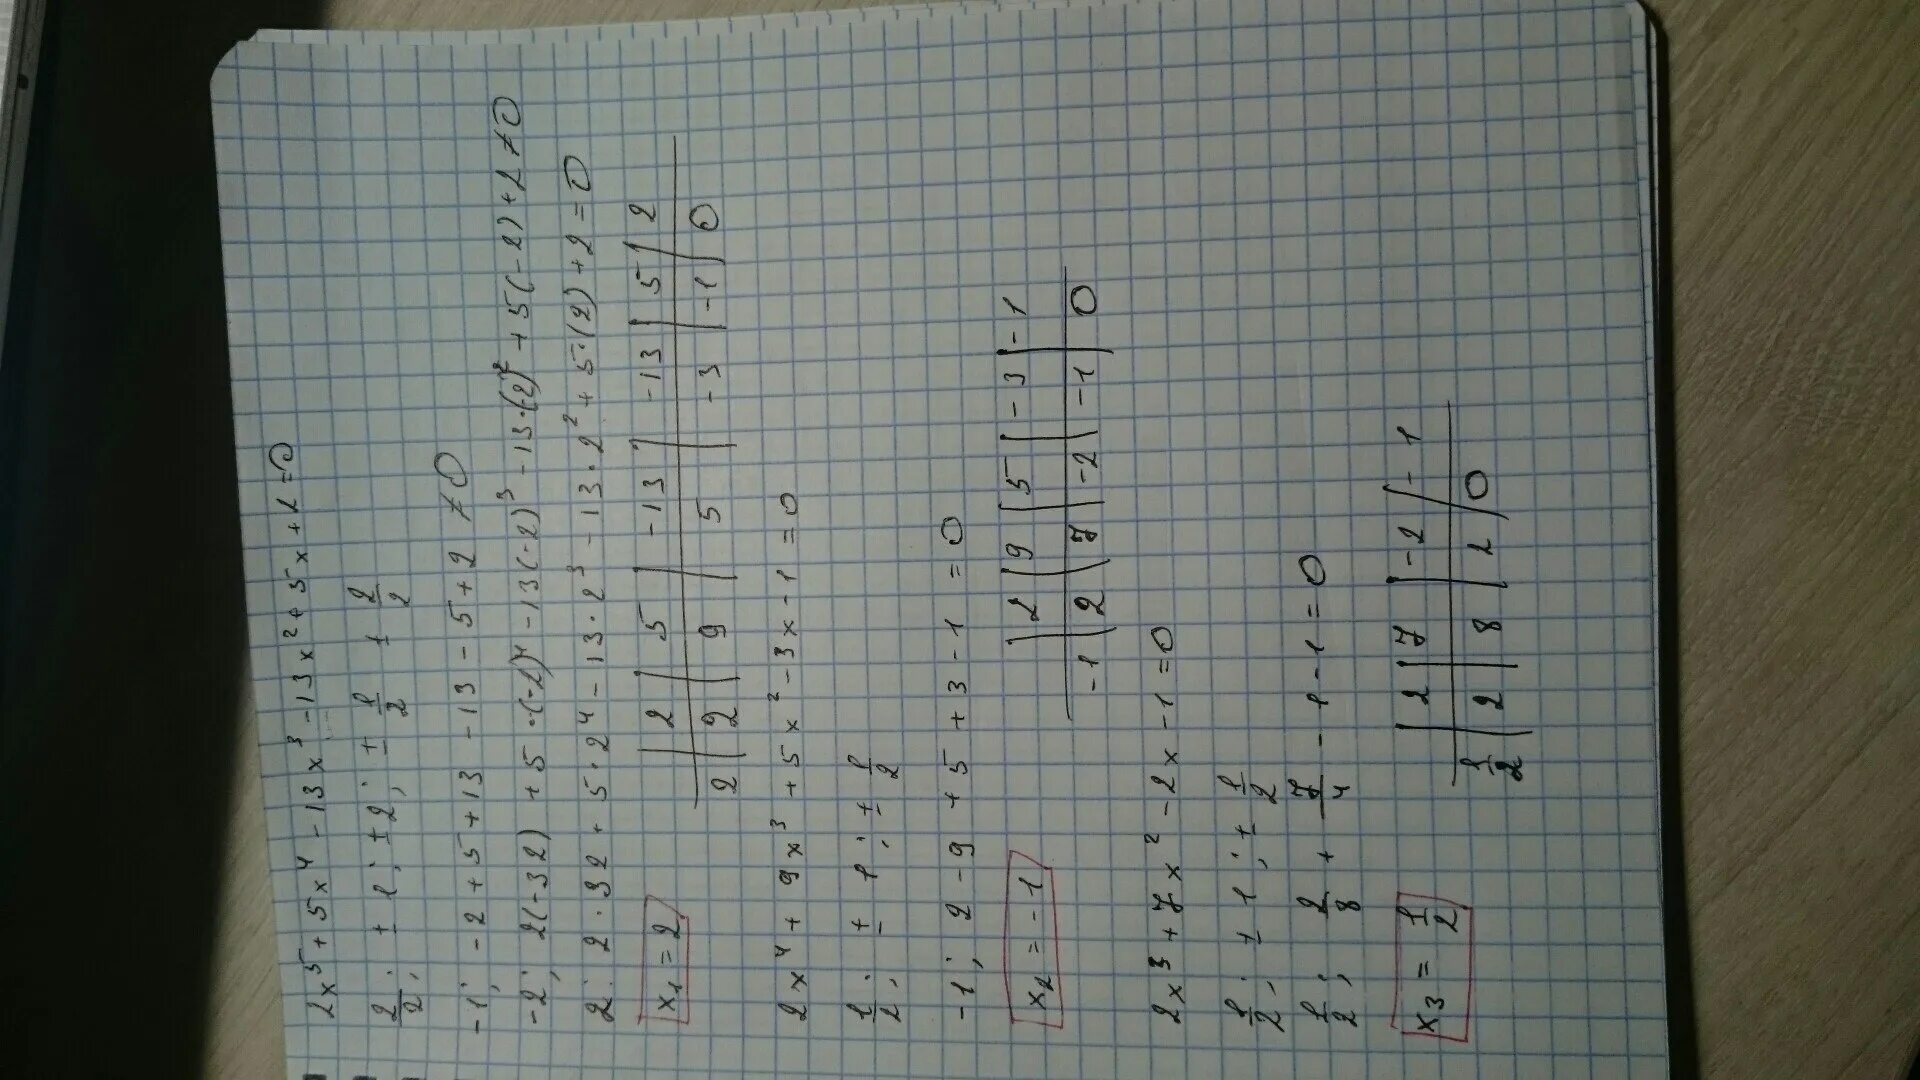 2x⁵+5x⁴-13x³-13x²+5x+2=0
2/2; ±1; ±2; ±1/2 ±2/2
-1; -2+5+13-13-5+2≠0
-2; 2(-32)+5·(-2)⁴-13(-2)³-13·(-2)²+5(-2)+2≠0
2: 2·32+5·2⁴-13·2³-13·2²+5·(2)+2=0
x₁=2
| 2 | 5 | -13 | -13 | 5 | 2
2 | 2 | 9 | 5 | -3 | -1 | 0
2x⁴+9x³+5x²-3x-1=0
1/2; ±1; ±1/2
-1; 2-9+5+3-1=0
x₂=-1
| 2 | 9 | 5 | -3 | -1
-1 | 2 | 7 | -2 | -1 | 0
2x³+7x²-2x-1=0
1/2; ±1; ±1/2
1/2; 2/8+7/4-1-1=0
x₃=1/2
| 2 | 7 | -2 | -1
1/2 | 2 | 8 | 2 | 0